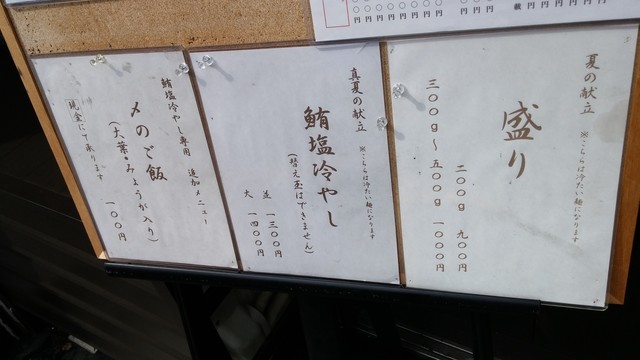 夏の献立 ※こちらは冷たい麺になります
盛り
二〇〇g 九〇〇円
三〇〇g~五〇〇g 一〇〇〇円
真夏の献立 ※こちらは冷たい麺になります
鮪塩冷やし
(替え玉はできません)
並 一三〇〇円
大 一四〇〇円
鮪塩冷やし専用 追加メニュー
〆のご飯
(大葉・みょうが入り)
一〇〇円
現金にて承ります